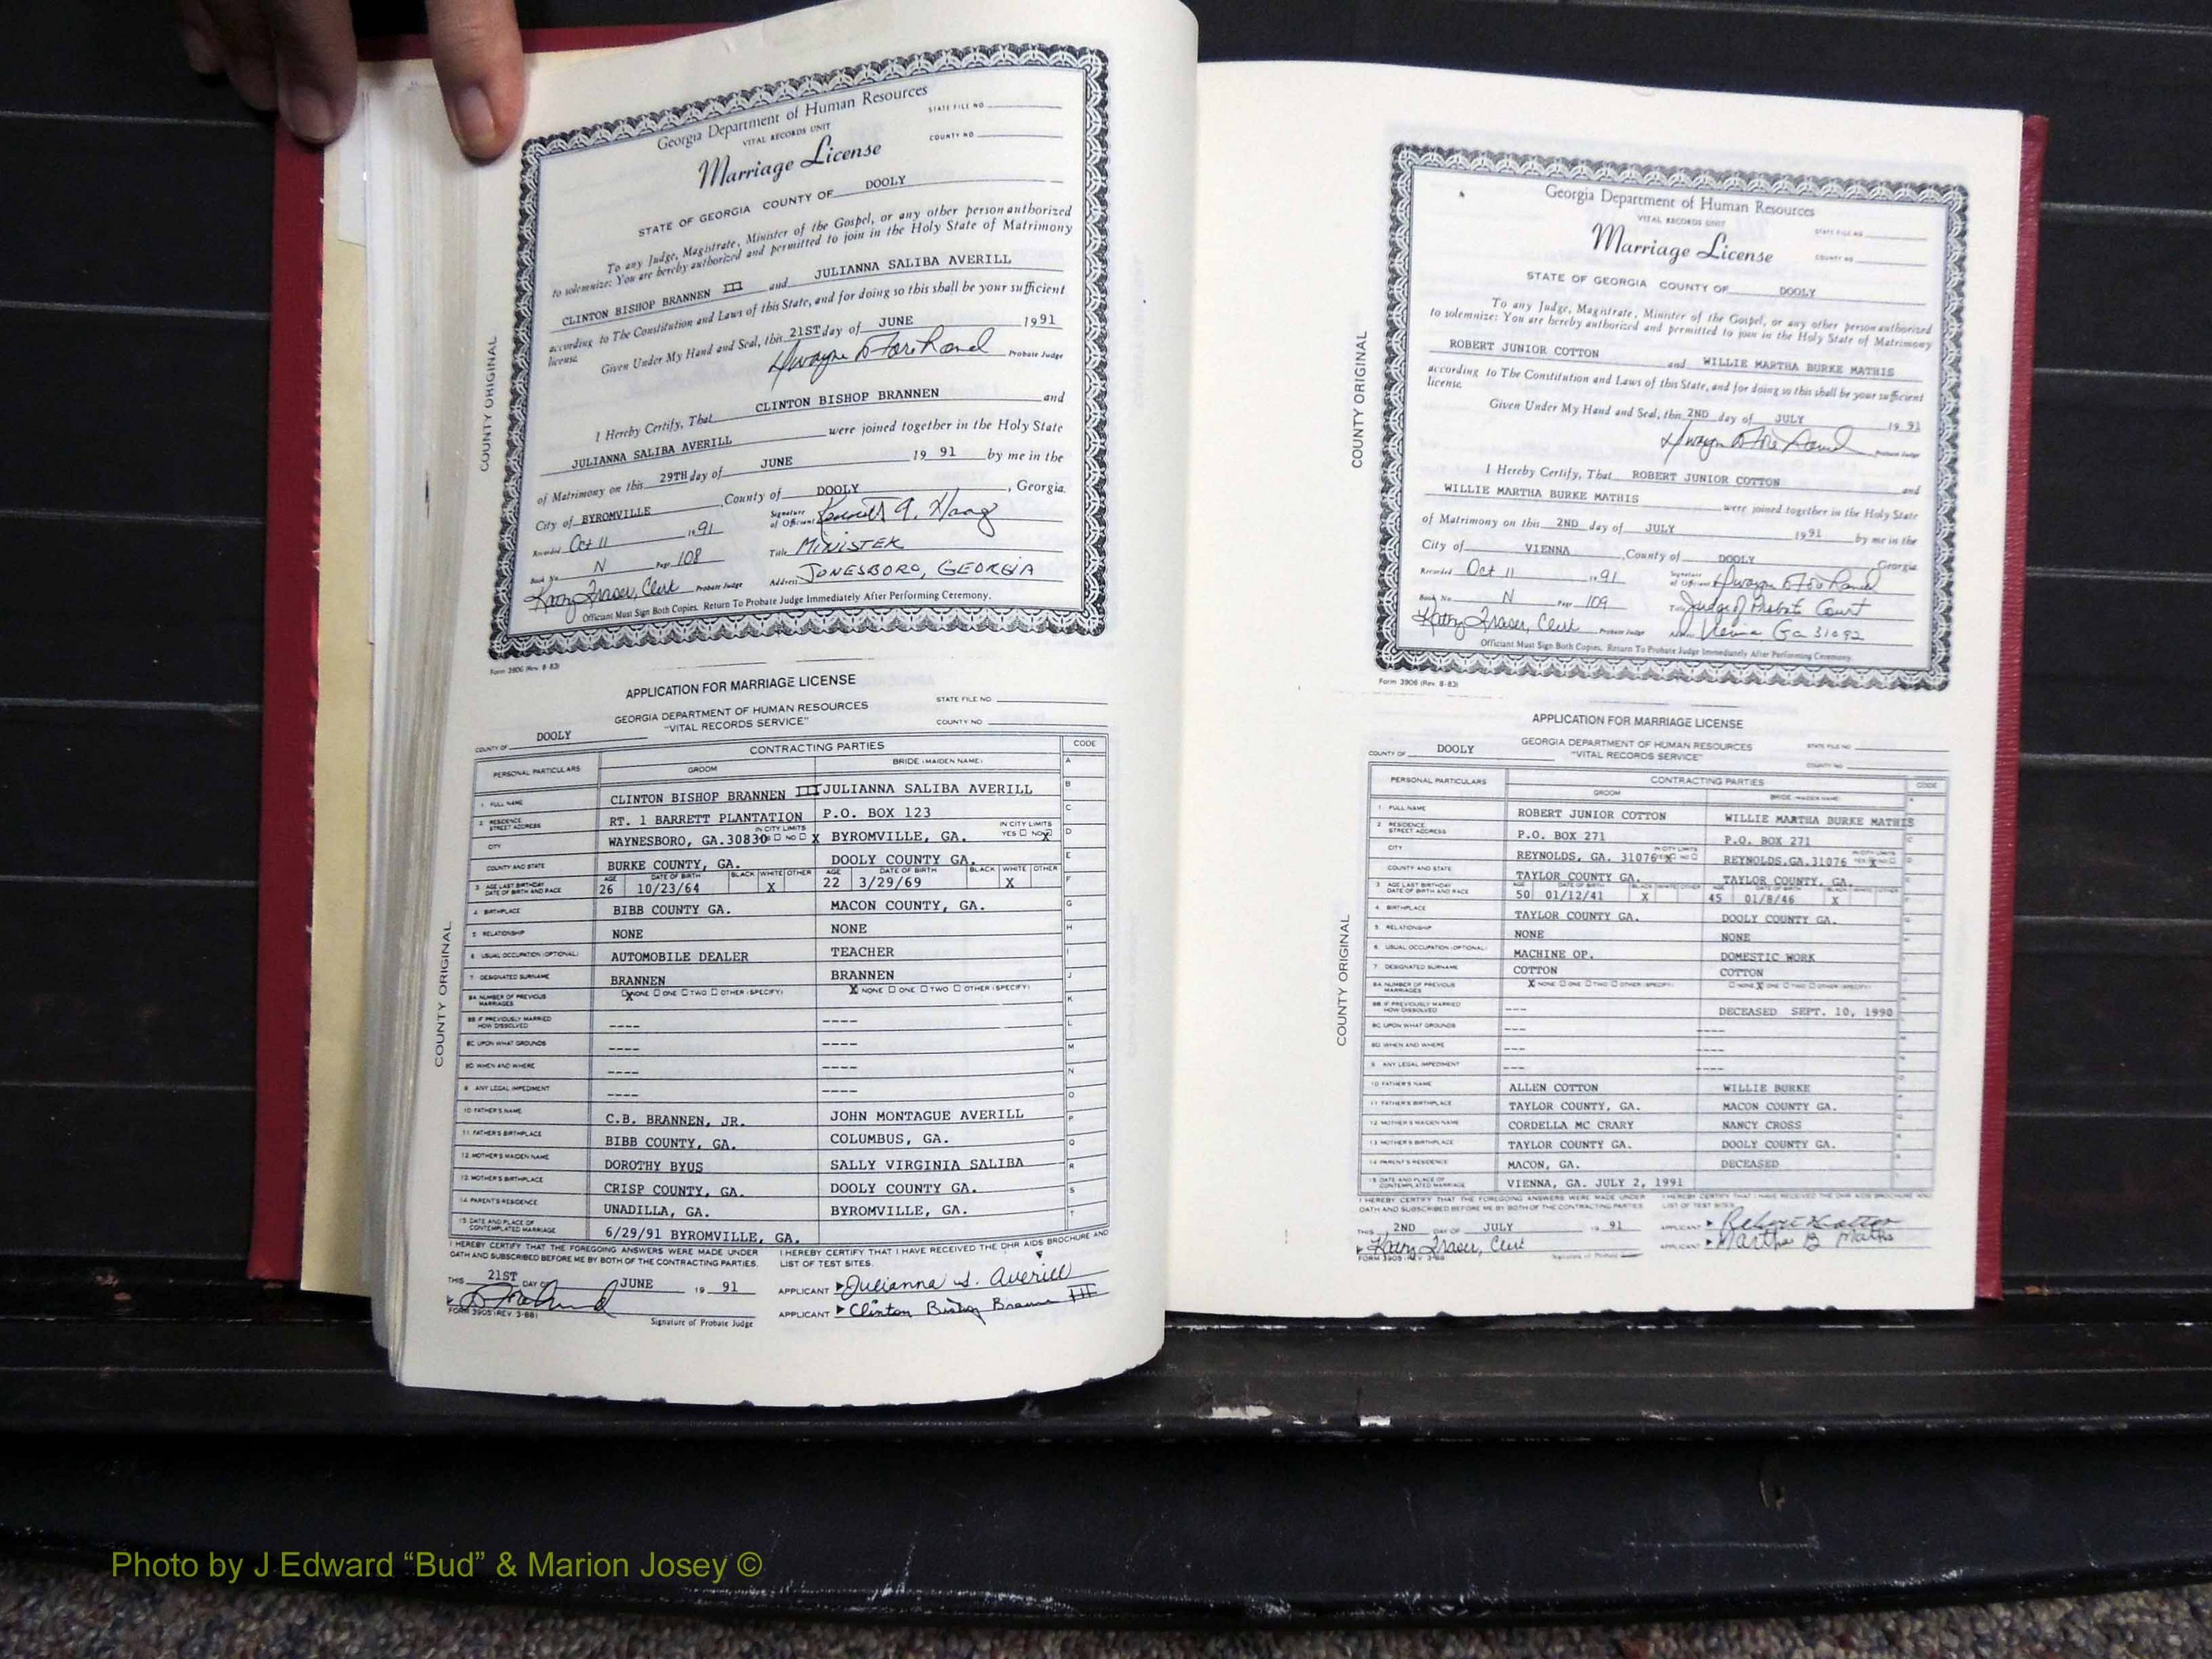 Georgia Department of Human Resources
VITAL RECORDS UNIT
STATE FILE NO
COUNTY NO
Marriage License
STATE OF GEORGIA COUNTY OF DOOLY
To any Judge, Magistrate, Minister of the Gospel, or any other person authorized
to solemnize: You are hereby authorized and permitted to join in the Holy State of Matrimony
CLINTON BISHOP BRANNEN III and JULIANNA SALIBA AVERILL
according to The Constitution and Laws of this State, and for doing so this shall be your sufficient
license.
Given Under My Hand and Seal, this 21ST day of JUNE 1991
Probate Judge
I Hereby Certify, That CLINTON BISHOP BRANNEN and
JULIANNA SALIBA AVERILL were joined together in the Holy State
of Matrimony on this 29TH day of JUNE 19 91 by me in the
City of BYROMVILLE, County of DOOLY, Georgia.
Recorded Oct 11 1991 Signature of Officiant Kenneth A. Haag
Book No. N Page 108 Title MINISTER
Kathy Fraser, Clerk Probate Judge Address JONESBORO, GEORGIA
Officiant Must Sign Both Copies. Return To Probate Judge Immediately After Performing Ceremony.
Form 3906 (Rev. 8-83)
COUNTY ORIGINAL
APPLICATION FOR MARRIAGE LICENSE
STATE FILE NO
GEORGIA DEPARTMENT OF HUMAN RESOURCES
"VITAL RECORDS SERVICE"
COUNTY NO
COUNTY OF DOOLY
PERSONAL PARTICULARS CONTRACTING PARTIES CODE
GROOM BRIDE (MAIDEN NAME)
1 FULL NAME CLINTON BISHOP BRANNEN III JULIANNA SALIBA AVERILL
2 RESIDENCE STREET ADDRESS RT. 1 BARRETT PLANTATION P.O. BOX 123
CITY WAYNESBORO, GA.30830 IN CITY LIMITS NO X BYROMVILLE, GA. IN CITY LIMITS YES NO X
COUNTY AND STATE BURKE COUNTY, GA. DOOLY COUNTY GA.
3 AGE LAST BIRTHDAY DATE OF BIRTH AND RACE AGE 26 DATE OF BIRTH 10/23/64 BLACK WHITE X OTHER AGE 22 DATE OF BIRTH 3/29/69 BLACK WHITE X OTHER
4 BIRTHPLACE BIBB COUNTY GA. MACON COUNTY, GA.
5 RELATIONSHIP NONE NONE
6 USUAL OCCUPATION (OPTIONAL) AUTOMOBILE DEALER TEACHER
7 DESIGNATED SURNAME BRANNEN BRANNEN
8A NUMBER OF PREVIOUS MARRIAGES X NONE ONE TWO OTHER (SPECIFY) X NONE ONE TWO OTHER (SPECIFY)
8B IF PREVIOUSLY MARRIED HOW DISSOLVED ---- ----
8C UPON WHAT GROUNDS ---- ----
8D WHEN AND WHERE ---- ----
9 ANY LEGAL IMPEDIMENT ---- ----
10 FATHER'S NAME C.B. BRANNEN, JR. JOHN MONTAGUE AVERILL
11 FATHER'S BIRTHPLACE BIBB COUNTY, GA. COLUMBUS, GA.
12 MOTHER'S MAIDEN NAME DOROTHY BYUS SALLY VIRGINIA SALIBA
13 MOTHER'S BIRTHPLACE CRISP COUNTY, GA. DOOLY COUNTY GA.
14 PARENT'S RESIDENCE UNADILLA, GA. BYROMVILLE, GA.
15 DATE AND PLACE OF CONTEMPLATED MARRIAGE 6/29/91 BYROMVILLE, GA.
A B C D E F G H I J K L M N O P Q R S T
COUNTY ORIGINAL
I HEREBY CERTIFY THAT THE FOREGOING ANSWERS WERE MADE UNDER
OATH AND SUBSCRIBED BEFORE ME BY BOTH OF THE CONTRACTING PARTIES.
I HEREBY CERTIFY THAT I HAVE RECEIVED THE DHR AIDS BROCHURE AND
LIST OF TEST SITES.
THIS 21ST DAY OF JUNE 19 91
APPLICANT Julianna S. Averill
APPLICANT Clinton Bishop Brannen III
FORM 3905 (REV. 3-88)
Signature of Probate Judge
Georgia Department of Human Resources
VITAL RECORDS UNIT
STATE FILE NO
Marriage License
COUNTY NO
STATE OF GEORGIA COUNTY OF DOOLY
To any Judge, Magistrate, Minister of the Gospel, or any other person authorized
to solemnize: You are hereby authorized and permitted to join in the Holy State of Matrimony
ROBERT JUNIOR COTTON and WILLIE MARTHA BURKE MATHIS
according to The Constitution and Laws of this State, and for doing so this shall be your sufficient
license.
Given Under My Hand and Seal, this 2ND day of JULY 19 91
Probate Judge
I Hereby Certify, That ROBERT JUNIOR COTTON and
WILLIE MARTHA BURKE MATHIS were joined together in the Holy State
of Matrimony on this 2ND day of JULY 1991 by me in the
City of VIENNA, County of DOOLY Georgia
Recorded Oct 11 1991 Signature of Officiant
Book No. N Page 109 Title Judge of Probate Court
Kathy Fraser, Clerk Probate Judge Address Vienna Ga 31092
Officiant Must Sign Both Copies. Return To Probate Judge Immediately After Performing Ceremony.
Form 3906 (Rev. 8-83)
COUNTY ORIGINAL
APPLICATION FOR MARRIAGE LICENSE
GEORGIA DEPARTMENT OF HUMAN RESOURCES
"VITAL RECORDS SERVICE"
STATE FILE NO
COUNTY NO
COUNTY OF DOOLY
PERSONAL PARTICULARS CONTRACTING PARTIES CODE
GROOM BRIDE (MAIDEN NAME)
1 FULL NAME ROBERT JUNIOR COTTON WILLIE MARTHA BURKE MATHIS
2 RESIDENCE STREET ADDRESS P.O. BOX 271 P.O. BOX 271
CITY REYNOLDS, GA. 31076 IN CITY LIMITS YES X NO REYNOLDS,GA.31076 IN CITY LIMITS YES X NO
COUNTY AND STATE TAYLOR COUNTY GA. TAYLOR COUNTY, GA.
3 AGE LAST BIRTHDAY DATE OF BIRTH AND RACE AGE 50 DATE OF BIRTH 01/12/41 BLACK X WHITE OTHER AGE 45 DATE OF BIRTH 01/8/46 BLACK X WHITE OTHER
4 BIRTHPLACE TAYLOR COUNTY GA. DOOLY COUNTY GA.
5 RELATIONSHIP NONE NONE
6 USUAL OCCUPATION (OPTIONAL) MACHINE OP. DOMESTIC WORK
7 DESIGNATED SURNAME COTTON COTTON
8A NUMBER OF PREVIOUS MARRIAGES X NONE ONE TWO OTHER (SPECIFY) NONE X ONE TWO OTHER (SPECIFY)
8B IF PREVIOUSLY MARRIED HOW DISSOLVED --- DECEASED SEPT. 10, 1990
8C UPON WHAT GROUNDS --- ----
8D WHEN AND WHERE --- ----
9 ANY LEGAL IMPEDIMENT --- ----
10 FATHER'S NAME ALLEN COTTON WILLIE BURKE
11 FATHER'S BIRTHPLACE TAYLOR COUNTY, GA. MACON COUNTY GA.
12 MOTHER'S MAIDEN NAME CORDELLA MC CRARY NANCY CROSS
13 MOTHER'S BIRTHPLACE TAYLOR COUNTY GA. DOOLY COUNTY GA.
14 PARENT'S RESIDENCE MACON, GA. DECEASED
15 DATE AND PLACE OF CONTEMPLATED MARRIAGE VIENNA, GA. JULY 2, 1991
COUNTY ORIGINAL
I HEREBY CERTIFY THAT THE FOREGOING ANSWERS WERE MADE UNDER
OATH AND SUBSCRIBED BEFORE ME BY BOTH OF THE CONTRACTING PARTIES
I HEREBY CERTIFY THAT I HAVE RECEIVED THE DHR AIDS BROCHURE AND
LIST OF TEST SITES
THIS 2ND DAY OF JULY 19 91
APPLICANT Robert Cotton
Kathy Fraser, Clerk
APPLICANT Martha B Mathis
FORM 3905 (REV. 3-88)
Signature of Probate
Photo by J Edward “Bud” & Marion Josey ©